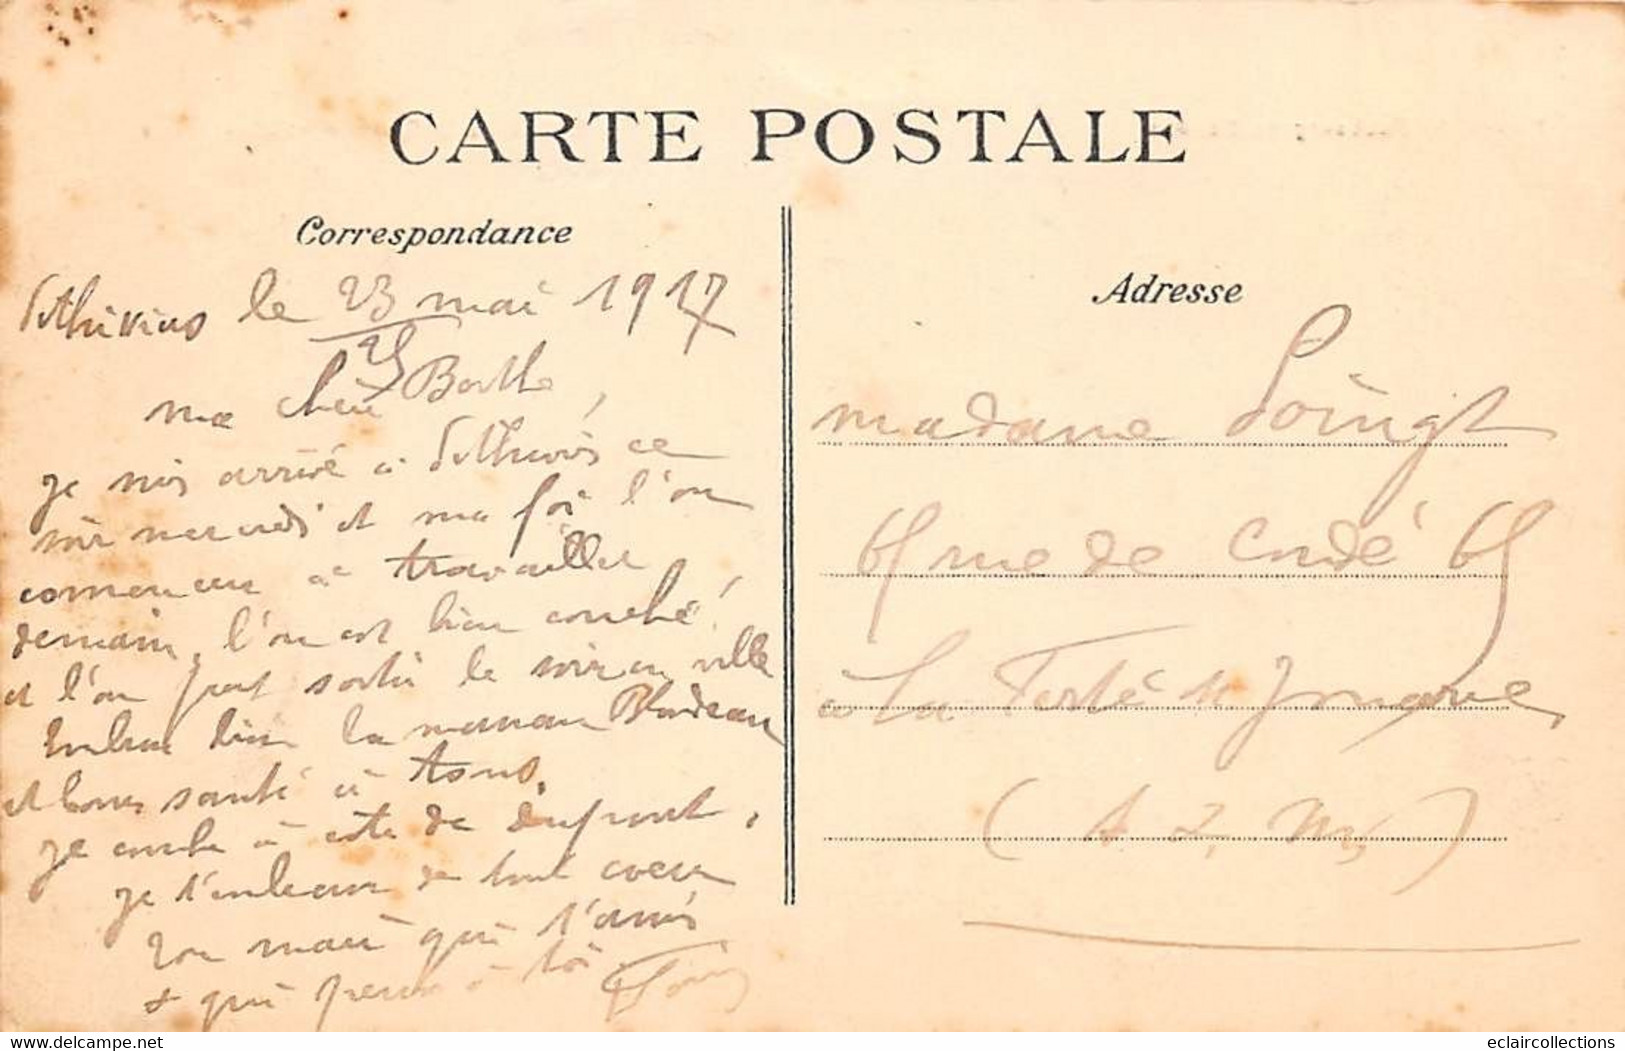 CARTE POSTALE
Correspondance
Pithiviers le 23 mai 1917
ma chère Berthe,
je suis arrivé à Pithiviers ce
soir mercredi et ma foi l'on
commence à travailler
demain, l'on est bien couché
et l'on peut sortir le soir en ville
Embrasse bien la maman
et bonne santé à tous.
je couche à côté de Dufront,
je t'embrasse de tout coeur
ton mari qui t'aime
+ qui pense à toi
Adresse
madame Poingt
65 rue de Condé 65
à La Ferté s/ Jouarre
(S. et M.)
eclaircollections